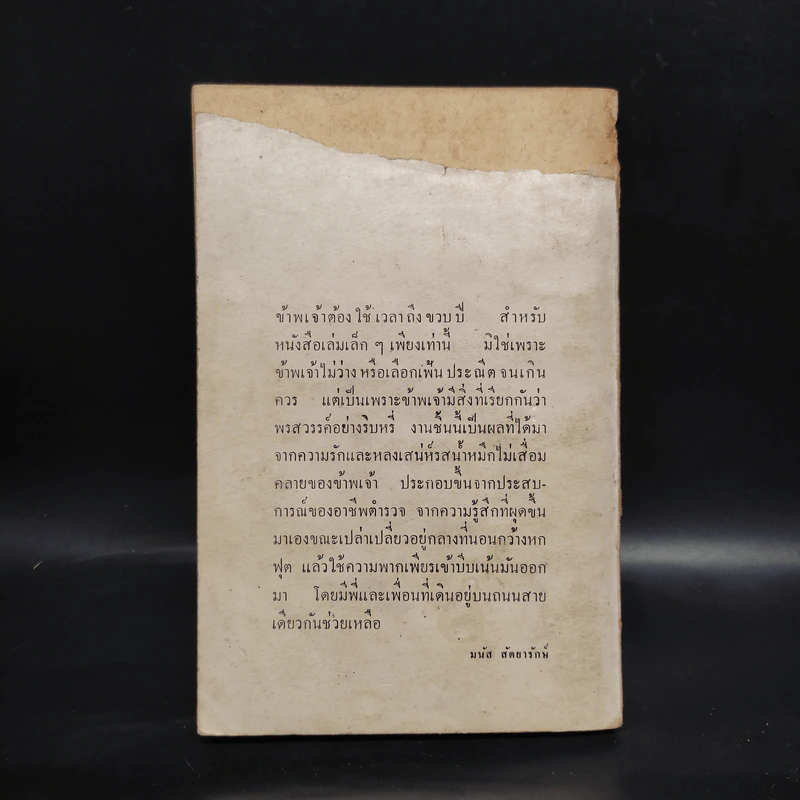 ข้าพเจ้าต้องใช้เวลาถึงขวบปี สำหรับ
หนังสือเล่มเล็ก ๆ เพียงเท่านี้ มิใช่เพราะ
ข้าพเจ้าไม่ว่าง หรือเลือกเฟ้น ประณีต จนเกิน
ควร แต่เป็นเพราะข้าพเจ้ามีสิ่งที่เรียกกันว่า
พรสวรรค์อย่างริบหรี่ งานชิ้นนี้เป็นผลที่ได้มา
จากความรักและหลงเสน่ห์รสน้ำหมึกไม่เสื่อม
คลายของข้าพเจ้า ประกอบขึ้นจากประสบ-
การณ์ของอาชีพตำรวจ จากความรู้สึกที่ผุดขึ้น
มาเองขณะเปล่าเปลี่ยวอยู่กลางที่นอนกว้างหก
ฟุต แล้วใช้ความพากเพียรเข้าบีบเน้นมันออก
มา โดยมีพี่และเพื่อนที่เดินอยู่บนถนนสาย
เดียวกันช่วยเหลือ
มนัส สัตยารักษ์